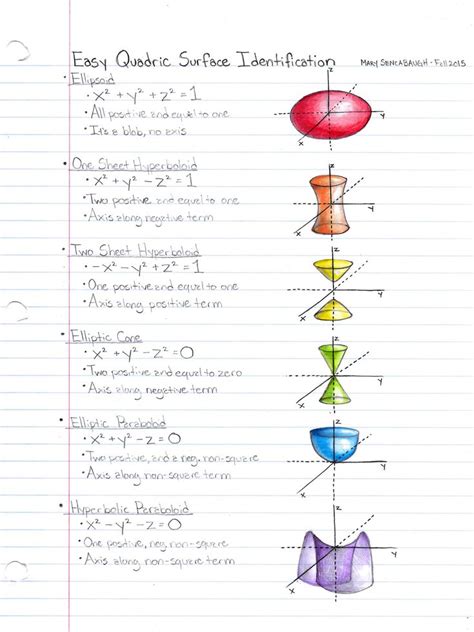 Easy Quadric Surface Identification
MARY SENCABAUGH - Fall 2015
• Ellipsoid
• x² + y² + z² = 1
• All positive and equal to one
• It's a blob, no axis
z
y
x
• One Sheet Hyperboloid
• x² + y² - z² = 1
• Two positive and equal to one
• Axis along negative term
z
y
x
• Two Sheet Hyperboloid
• -x² - y² + z² = 1
• One positive and equal to one
• Axis along positive term
z
y
x
• Elliptic Cone
• x² + y² - z² = 0
• Two positive and equal to zero
• Axis along negative term
z
y
x
• Elliptic Paraboloid
• x² + y² - z = 0
• Two positive, and a neg. non-square
• Axis along non-square term
z
y
x
• Hyperbolic Paraboloid
• x² - y² - z = 0
• One positive, neg. non-square
• Axis along non-square term
z
y
x